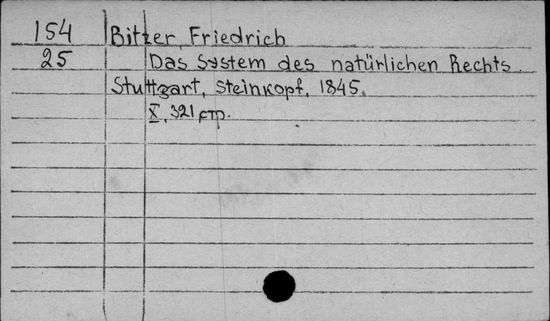 154 Bitzer, Friedrich
25 Das System des natürlichen Rechts.
Stuttgart, Steinkopf, 1845.
X, 321 стр.